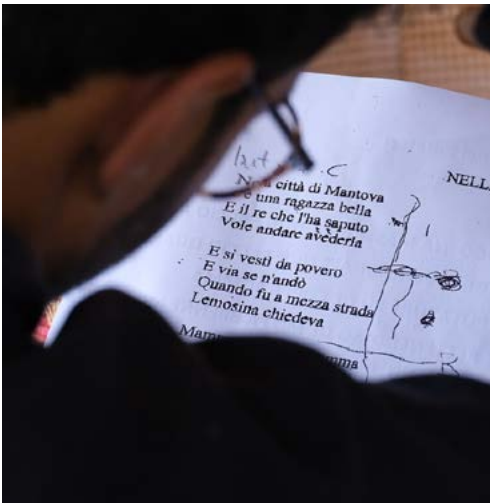 C
NELL
città di Mantova
una ragazza bella
E il re che l'ha saputo
Vole andare avèderla
E si vestì da povero
E via se n'andò
Quando fu a mezza strada
Lemosina chiedeva